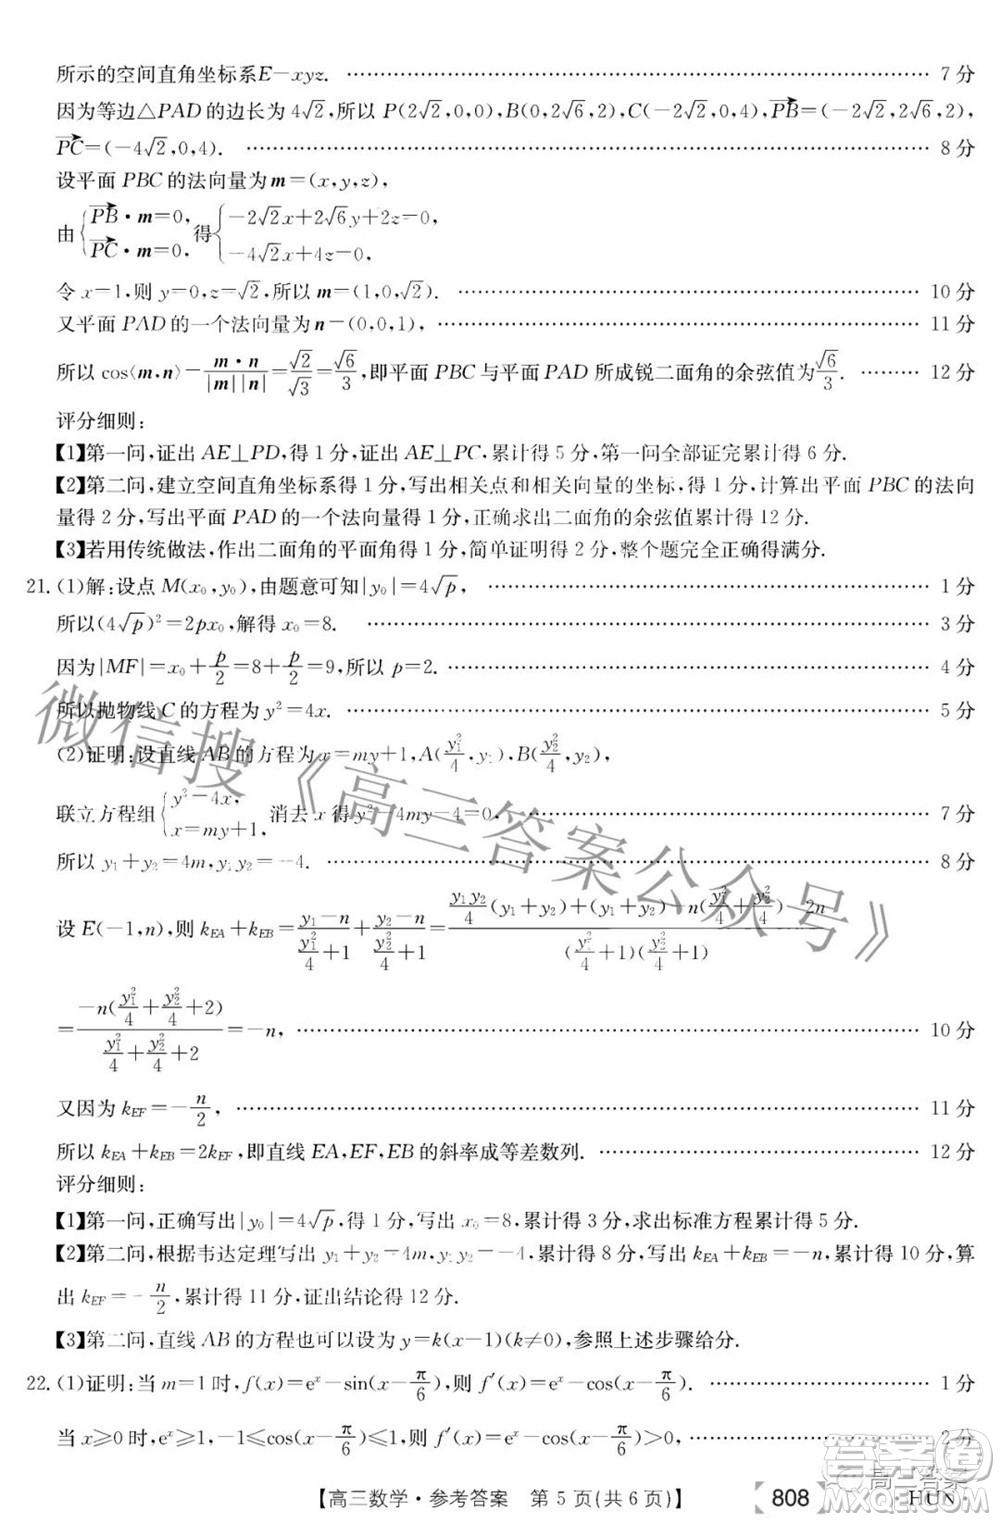 所示的空间直角坐标系E－xyz. ………… 7 分
因为等边△PAD的边长为 4√2,所以 P(2√2,0,0),B(0,2√6,2),C(-2√2,0,4),PB→=(-2√2,2√6,2),
PC→=(-4√2,0,4). ………… 8 分
设平面 PBC 的法向量为 m=(x,y,z),
由{PB→·m=0, PC→·m=0, 得{-2√2x+2√6y+2z=0, -4√2x+4z=0,
令 x=1,则 y=0,z=√2,所以 m=(1,0,√2). ………… 10 分
又平面 PAD 的一个法向量为 n=(0,0,1), ………… 11 分
所以 cos⟨m,n⟩=m·n/|m||n|=√2/√3=√6/3,即平面 PBC 与平面 PAD 所成锐二面角的余弦值为√6/3. ……… 12 分
评分细则:
【1】第一问,证出 AE⊥PD,得 1 分,证出 AE⊥PC,累计得 5 分,第一问全部证完累计得 6 分.
【2】第二问,建立空间直角坐标系得 1 分,写出相关点和相关向量的坐标,得 1 分,计算出平面 PBC 的法向
量得 2 分,写出平面 PAD 的一个法向量得 1 分,正确求出二面角的余弦值累计得 12 分.
【3】若用传统做法,作出二面角的平面角得 1 分,简单证明得 2 分,整个题完全正确得满分.
21. (1)解:设点 M(x₀,y₀),由题意可知|y₀|=4√p, ………… 1 分
所以(4√p)²=2px₀,解得 x₀=8. ………… 3 分
因为|MF|=x₀+p/2=8+p/2=9,所以 p=2. ………… 4 分
所以抛物线 C 的方程为 y²=4x. ………… 5 分
(2)证明:设直线 AB 的方程为 x=my+1,A(y₁²/4,y₁),B(y₂²/4,y₂),
联立方程组{y²=4x, x=my+1, 消去 x 得 y²-4my-4=0, ………… 7 分
所以 y₁+y₂=4m,y₁y₂=-4. ………… 8 分
设 E(-1,n),则 k_EA+k_EB=(y₁-n)/(y₁²/4+1)+(y₂-n)/(y₂²/4+1)=[y₁y₂/4(y₁+y₂)+(y₁+y₂)-n(y₁²/4+y₂²/4)-2n]/[(y₁²/4+1)(y₂²/4+1)]
=-n(y₁²/4+y₂²/4+2)/(y₁²/4+y₂²/4+2)=-n, ………… 10 分
又因为 k_EF=-n/2, ………… 11 分
所以 k_EA+k_EB=2k_EF,即直线 EA,EF,EB 的斜率成等差数列. ………… 12 分
评分细则:
【1】第一问,正确写出|y₀|=4√p,得 1 分,写出 x₀=8,累计得 3 分,求出标准方程累计得 5 分.
【2】第二问,根据韦达定理写出 y₁+y₂=4m,y₁y₂=-4,累计得 8 分,写出 k_EA+k_EB=-n,累计得 10 分,算
出 k_EF=-n/2,累计得 11 分,证出结论得 12 分.
【3】第二问,直线 AB 的方程也可以设为 y=k(x-1)(k≠0),参照上述步骤给分.
22. (1)证明:当 m=1 时,f(x)=eˣ-sin(x-π/6),则 f′(x)=eˣ-cos(x-π/6). ………… 1 分
当 x≥0 时,eˣ≥1,-1≤cos(x-π/6)≤1,故 f′(x)=eˣ-cos(x-π/6)>0, ………… 2 分
【高三数学·参考答案　第 5 页(共 6 页)】　808　·HUN·
微信搜《高三答案公众号》